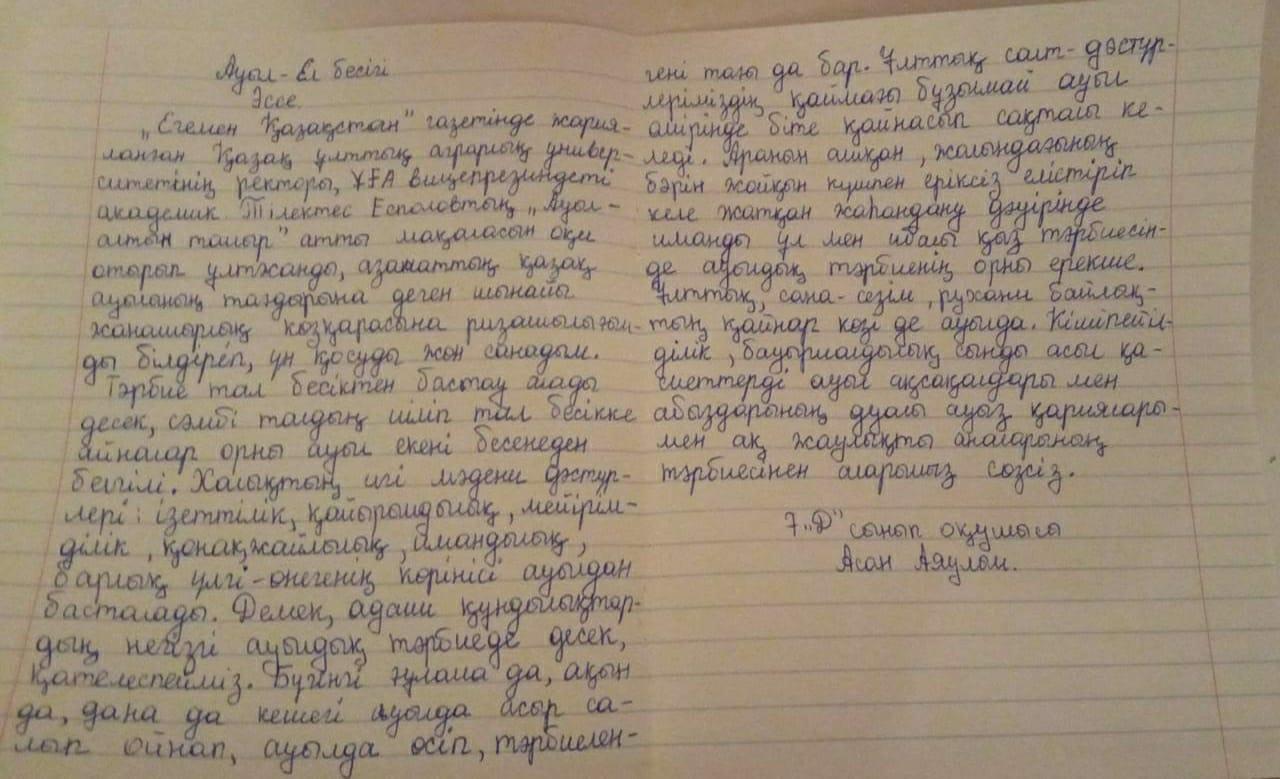 Ауыл - Ел бесігі
Эссе.
„Егемен Қазақстан" газетінде жария-
ланған Қазақ ұлттық аграрлық универ-
ситетінің ректоры, ҰҒА вицепрезиндеті
академик Тілектес Есполовтың „Ауыл -
алтын тамыр" атты мақаласын оқи
отырып ұлтжанды, азаматтың қазақ
ауылының тағдырына деген шынайы
жанашырлық көзқарасына ризашылығым-
ды білдіреп, үн қосуды жөн санадым.
Тәрбие тал бесіктен бастау алады
десек, сәмбі талдың иіліп тал бесікке
айналар орны ауыл екені бесенеден
белгілі. Халықтың игі мәдени дәстүр-
лері: ізеттілік, қайырымдылық, мейірім-
ділік, қонақжайлылық, имандылық,
барлық үлгі-өнегенің көрінісі ауылдан
басталады. Демек, адами құндылықтар-
дың негізгі ауылдық тәрбиеде десек,
қателеспейміз. Бүгінгі ғұлама да, ақын
да, дана да кешегі ауылда асыр са-
лып ойнап, ауылда өсіп, тәрбиелен-
гені тағы да бар. Ұлттық салт-дәстүр-
леріміздің қаймағы бұзылмай ауыл
өмірінде біте қайнасып сақталы ке-
леді. Аранын ашқан, жолындағының
бәрін жойқын күшпен еріксіз елістіріп
келе жатқан жаһандану дәуірінде
иманды ұл мен ибалы қыз тәрбиесін-
де ауылдық тәрбиенің орны ерекше.
Ұлттық, сана-сезім, рухани байлақ-
тың қайнар көзі де ауылда. Кішіпейіл-
ділік, бауырмалдылық сынды асыл қа-
сиеттерді ауыл ақсақалдары мен
абыздарының дуалы ауыз қариялары-
мен ақ жаулықты аналарының
тәрбиесінен аларымыз сөзсіз.
7 „Д" сынып оқушысы
Асан Аяулым.